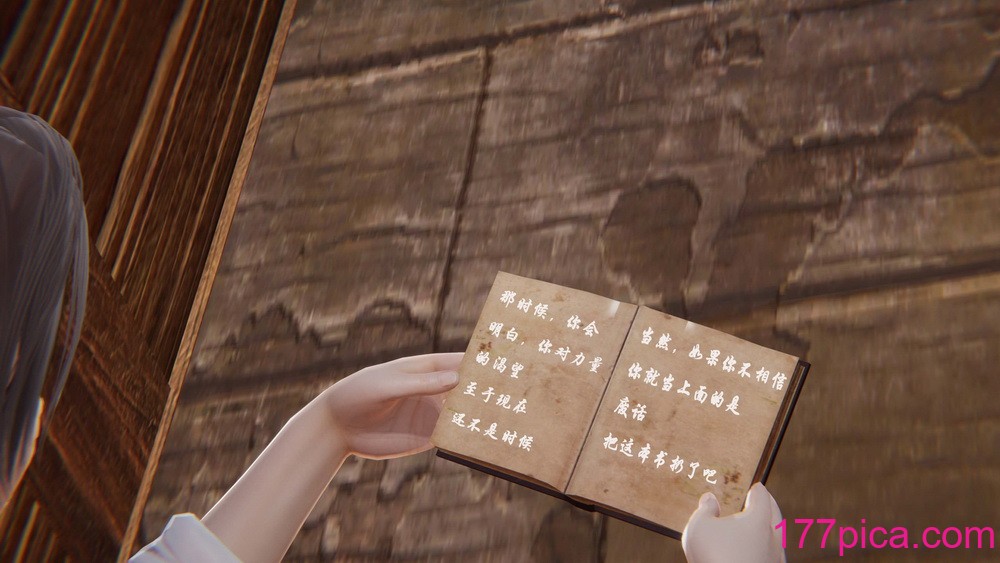 那时候，你会
明白，你对力量
的渴望
至于现在
还不是时候
当然，如果你不相信
你就当上面的是
废话
把这本书扔了吧
177pica.com